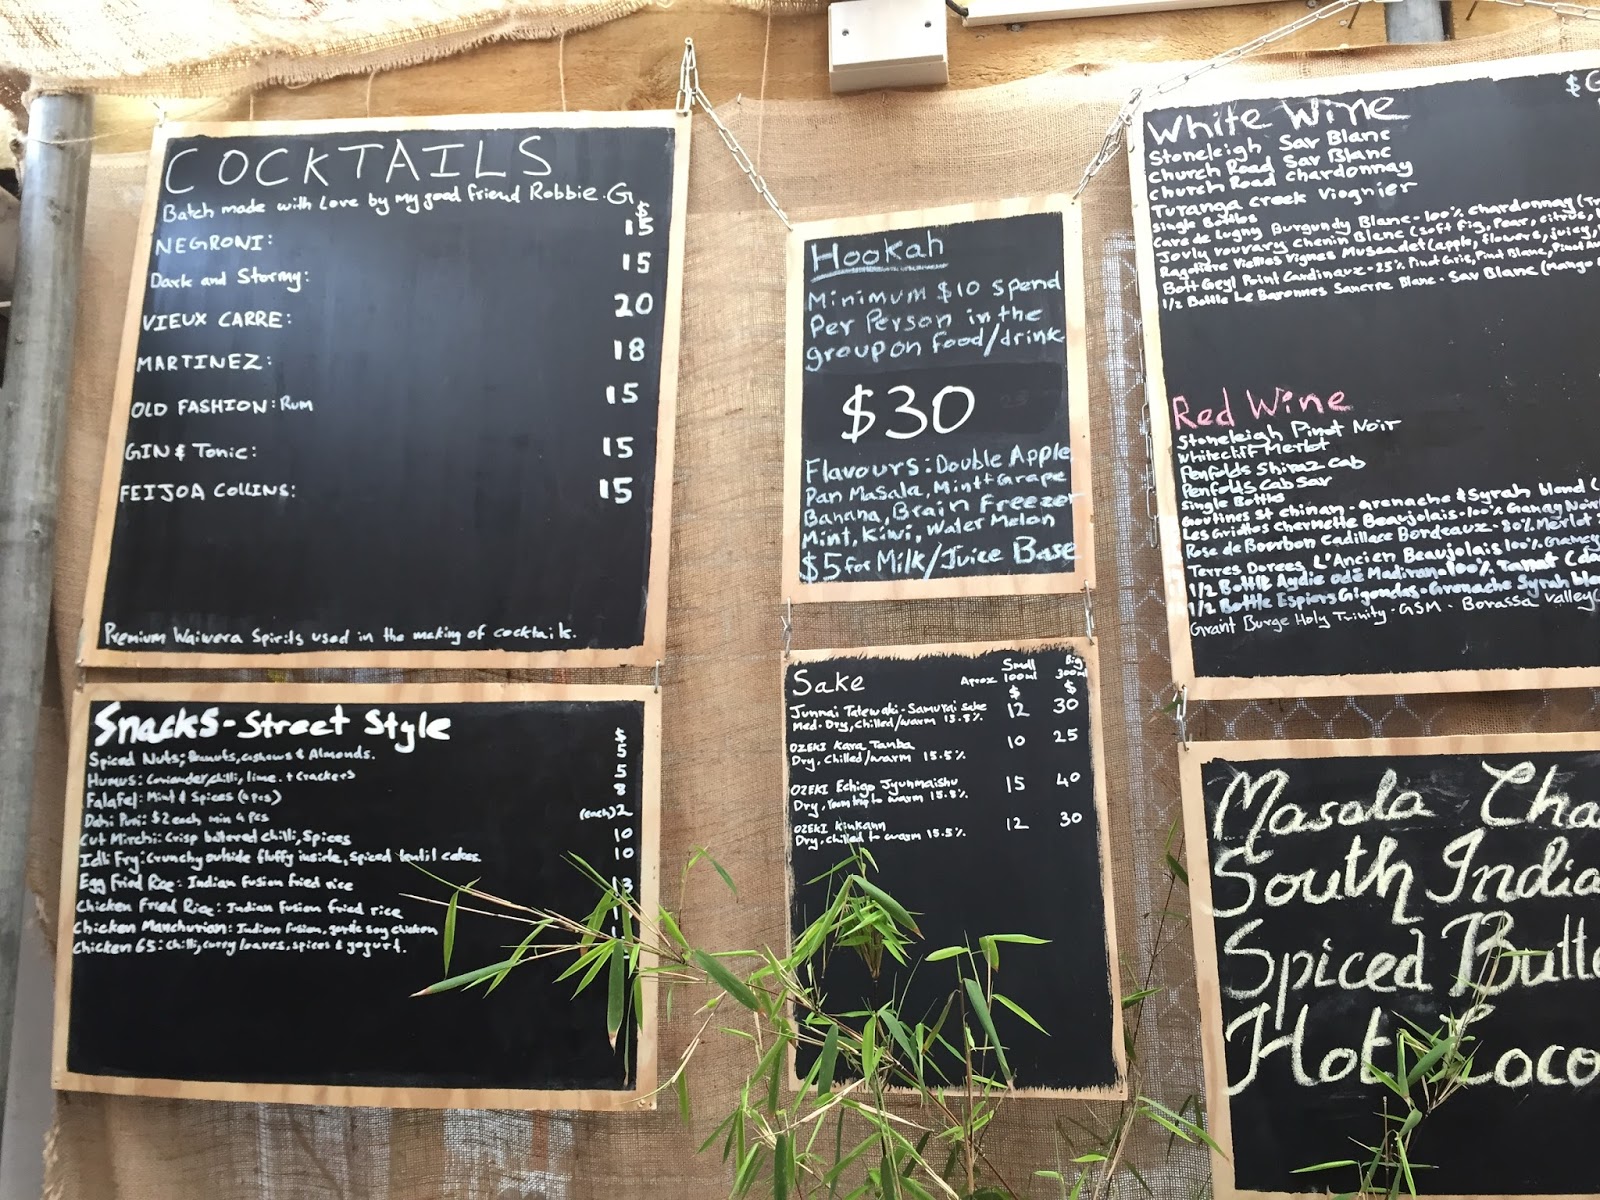 COCKTAILS
Batch made with Love by my good friend Robbie.G
$
NEGRONI: 15
Dark and Stormy: 15
VIEUX CARRE: 20
MARTINEZ: 18
OLD FASHION: Rum 15
GIN & Tonic: 15
FEIJOA COLLINS: 15
Premium Waiwera Spirits used in the making of cocktails.
Snacks - Street Style
$
Spiced Nuts; Peanuts, cashews & Almonds. 5
Humus: Coriander, chilli, lime. + Crackers 5
Falafel: Mint & Spices (4 pcs) 8
Dahi Puri: $2 each min 4 pcs (each) 2
Cut Mirchi: Crisp battered chilli, Spices 10
Idli Fry: Crunchy outside fluffy inside, spiced lentil cakes 10
Egg Fried Rice: Indian fusion fried rice 13
Chicken Fried Rice: Indian fusion fried rice
Chicken Manchurian: Indian fusion, garlic soy chicken
Chicken 65: chilli, curry leaves, spices & yogurt.
Hookah
Minimum $10 spend
Per Person in the
group on food/drink
$30
Flavours: Double Apple
Pan Masala, Mint+Grape
Banana, Brain Freezer
Mint, Kiwi, Water Melon
$5 for Milk/Juice Base
Sake
Small Big
Aprox 100ml 300ml
$ $
Junmai Tatewaki - Samurai Sake 12 30
Med. Dry, Chilled/warm 15.5%
OZEKI Kara Tanba 10 25
Dry, Chilled/warm 15.5%
OZEKI Echigo Jyunmaishu 15 40
Dry, room tmp to warm 15.5%
OZEKI Kinkann 12 30
Dry, chilled to warm 15.5%
White Wine $G
Stoneleigh Sav Blanc
Church Road Sav Blanc
Church Road Chardonnay
Turanga Creek Viognier
Single Bottles
Cave de Lugny Burgundy Blanc - 100% Chardonnay
Jovly vouvary Chenin Blanc (soft fig, Pear, citrus,
Ragotiere Vielles Vignes Muscadet (apple, flowers, juicy,
Bott Geyl Point Cardinaux - 25% Pinot Gris, Pinot Blanc, Pinot
1/2 Bottle Le Baronnes Sancerre Blanc - Sav Blanc (mango
Red Wine
Stoneleigh Pinot Noir
Whitecliff Merlot
Penfolds Shiraz Cab
Penfolds Cab Sav
Single Bottles
St chinian - Grenache & Syrah blend
Les Gridios Chernette Beaujolais - 100% Gamay Noir
Rose de Bourbon Cadillace Bordeaux - 80% Merlot
Terres Dorees, L'Ancien Beaujolais 100% Gamey
1/2 Bottle Aydie ode Madiran - 100% Tanat
1/2 Bottle Espiers Gigondas - Grenache Syrah
Grant Burge Holy Trinity - GSM - Borassa Valley
Masala Cha
South India
Spiced Butte
Hot Coco